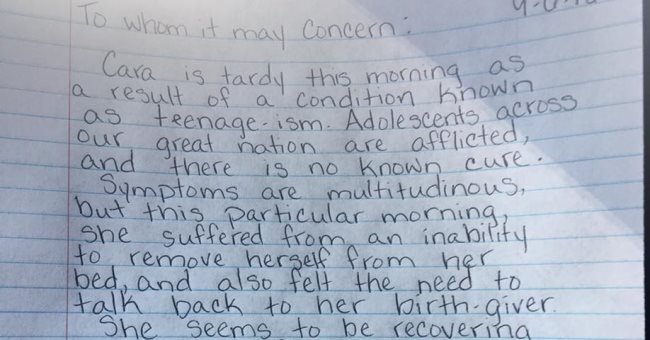 To whom it may concern:
Cara is tardy this morning as
a result of a condition known
as teenage-ism. Adolescents across
our great nation are afflicted,
and there is no known cure.
Symptoms are multitudinous,
but this particular morning,
she suffered from an inability
to remove herself from her
bed, and also felt the need to
talk back to her birth-giver.
She seems to be recovering